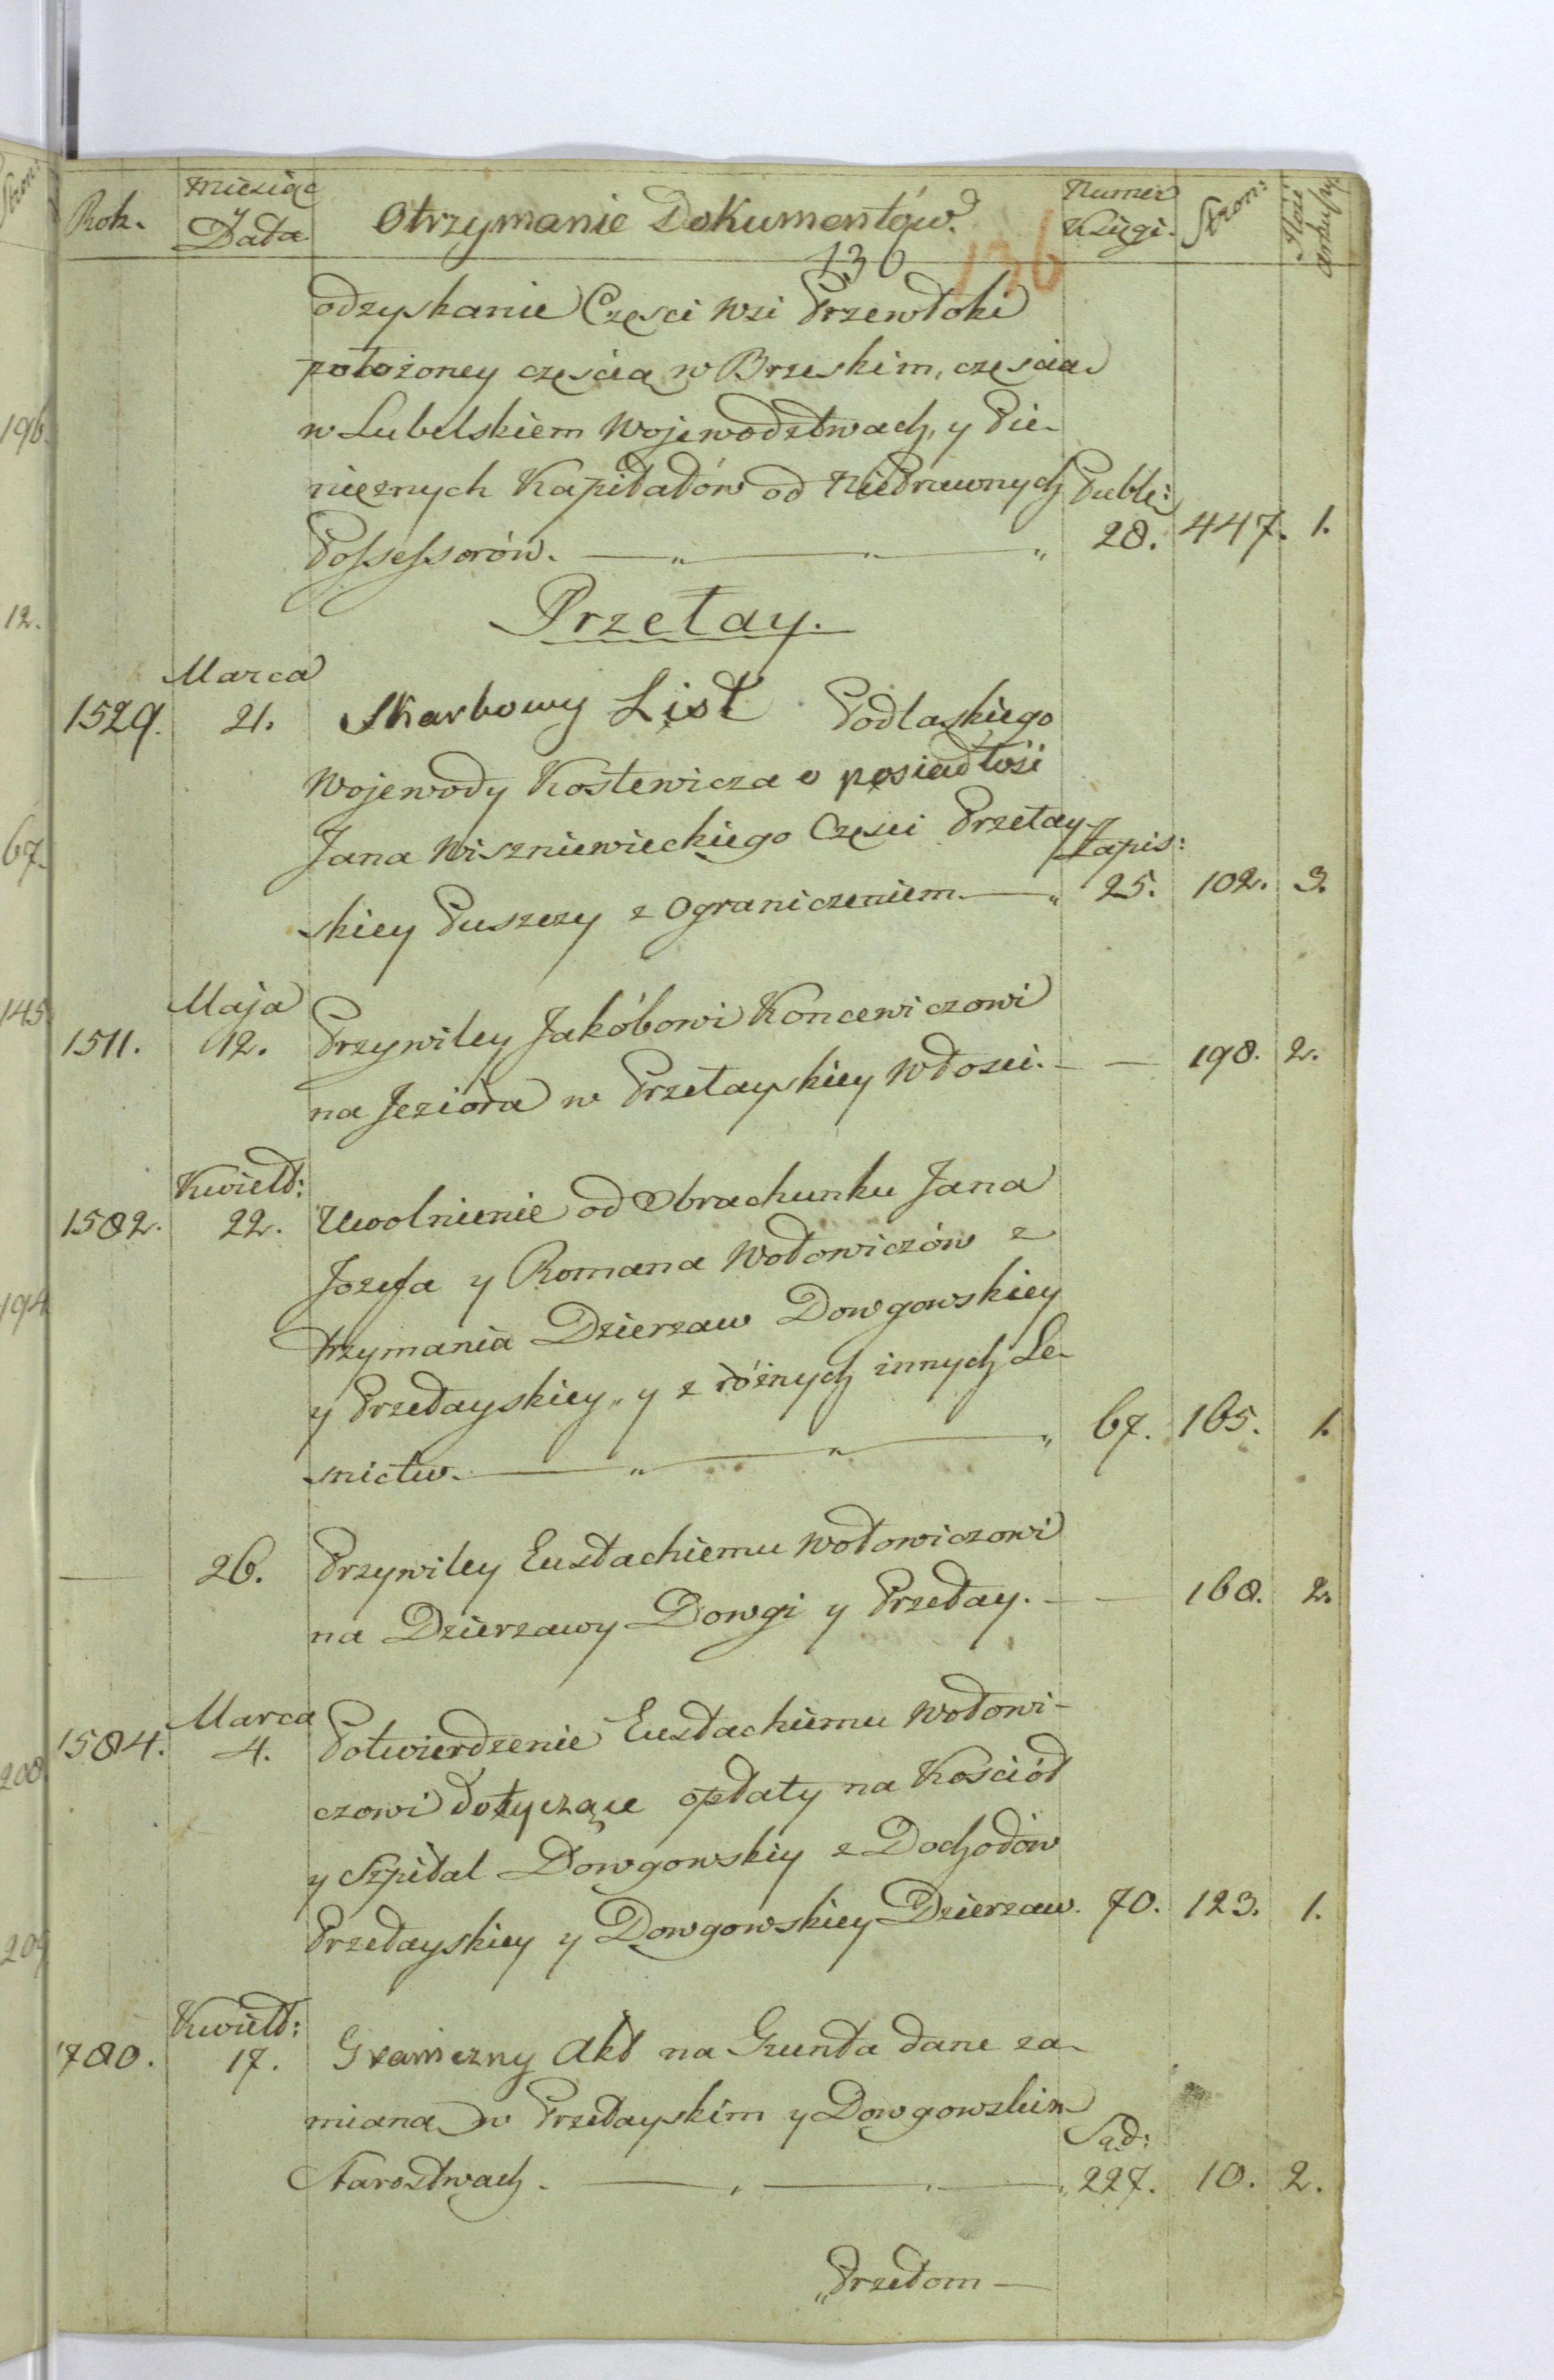 Rok. Miesiąc y Data. Otrzymanie Dokumentów. Numer Xsięgi. Stron: Ilość arkuszy.
136 136
odzyskanie Części wsi Przewłoki
położoney częścią w Brzeskim, częścią
w Lubelskiem Wojewodztwach, y Pie-
nięznych Kapitałów od Nieprawnych Publ:
Possessorów. 28. 447. 1.
Przełay.
Marca
1529. 21. Skarbowy List Podlaskiego
Wojewody Kostewicza o posiadłość
Jana Wiszniewieckiego Części Przełay-
Zapis:
skiey Puszczy z Ograniczeniem. 25. 102. 3.
Maja
1511. 12. Przywiley Jakóbowi Koncewiczowi
na Jeziora w Przełayskiey Włosci. — — 198. 2.
Kwiet:
1582. 22. Uwolnienie od Obrachunku Jana
Jozefa y Romana Wołowiczów z
trzymania Dzierzaw Dowgowskiey
y Przełayskiey, y z różnych innych Le-
snictw. 67. 165. 1.
— 26. Przywiley Eustachiemu Wołowiczowi
na Dzierzawy Dowgi y Przełay. — — 168. 2.
Marca
1584. 4. Potwierdzenie Eustachiemu Wołowi-
czowi dotyczące opłaty na Kościół
y Szpital Dowgowskiy z Dochodów
Przełayskiey y Dowgowskiey Dzierzaw. 70. 123. 1.
Kwiet:
1780. 17. Graniczny Akt na Grunta dane za-
miana w Przełayskim y Dowgowskim
Sąd:
Starostwach. 227. 10. 2.
„Przełom —